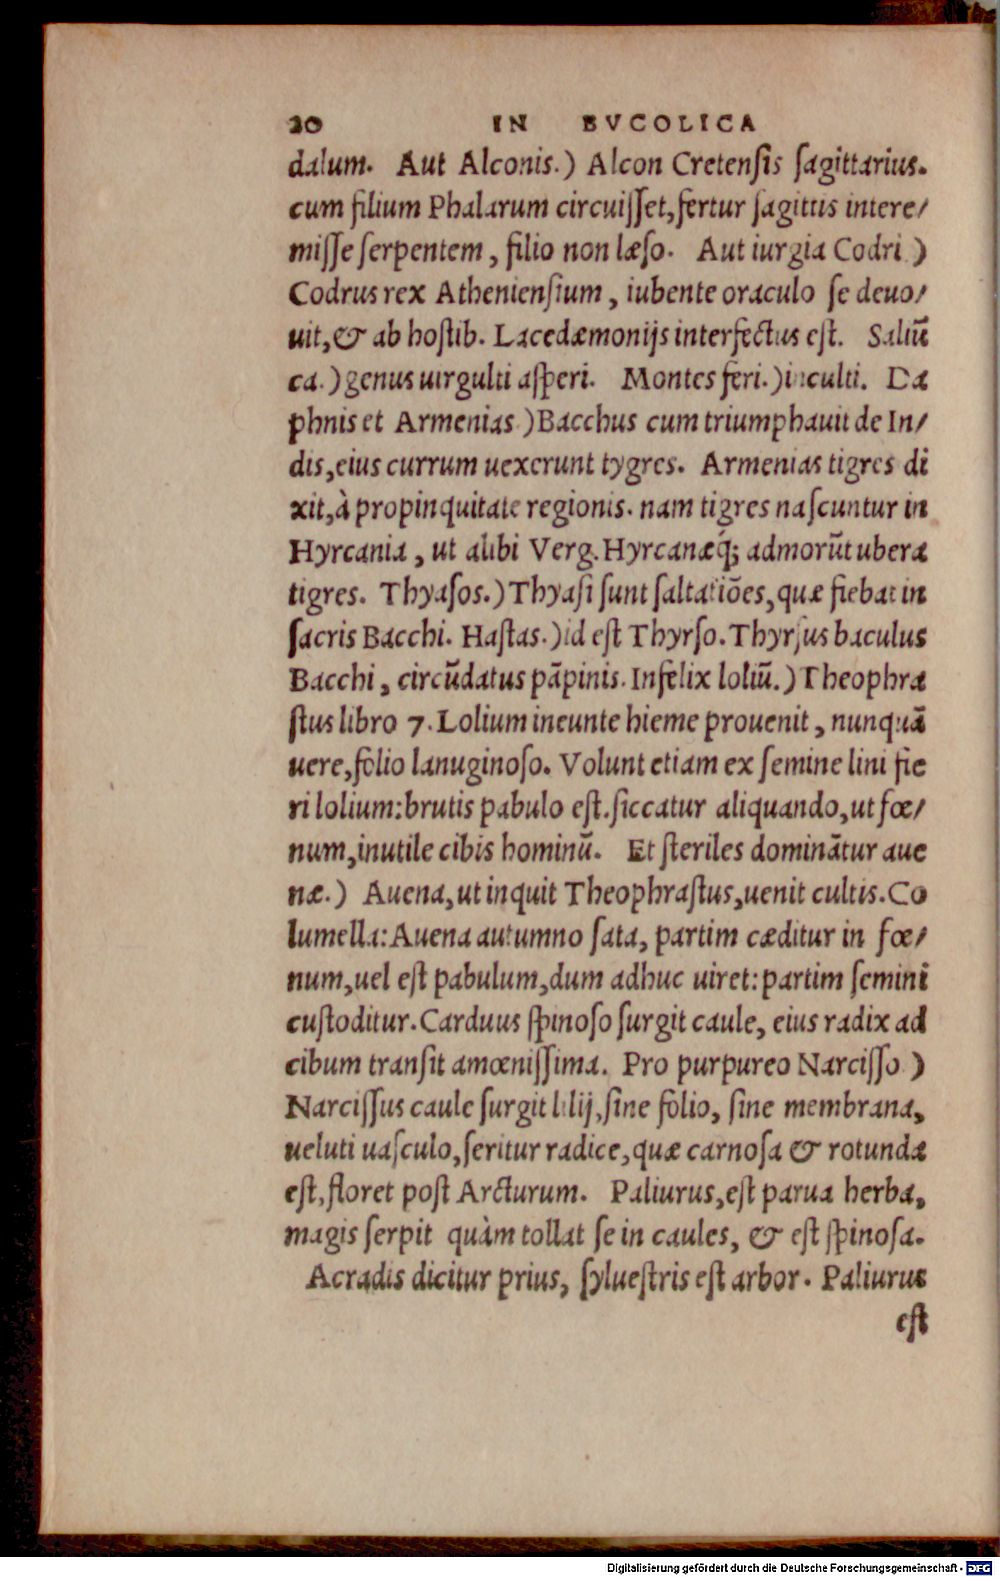 20 IN BVCOLICA
dalum. Aut Alconis.) Alcon Cretenſis ſagittarius.
cum filium Phalarum circuiſſet, fertur ſagittis intere/
miſſe ſerpentem, filio non læſo. Aut iurgia Codri.)
Codrus rex Athenienſium, iubente oraculo ſe deuo/
uit, & ab hoſtib. Lacedæmonijs interfectus eſt. Saliũ
ca.) genus uirgulti aſperi. Montes feri.) inculti. Da
phnis et Armenias.) Bacchus cum triumphauit de In/
dis, eius currum uexerunt tygres. Armenias tigres di
xit, à propinquitate regionis. nam tigres naſcuntur in
Hyrcania, ut alibi Verg. Hyrcanæq́; admorũt ubera
tigres. Thyaſos.) Thyaſi ſunt ſaltatiões, quæ fiebat in
ſacris Bacchi. Haſtas.) id eſt Thyrſo. Thyrſus baculus
Bacchi, circũdatus pãpinis. Infelix loliũ.) Theophra
ſtus libro 7. Lolium ineunte hieme prouenit, nunquã
uere, folio lanuginoſo. Volunt etiam ex ſemine lini fie
ri lolium: brutis pabulo eſt. ſiccatur aliquando, ut fœ/
num, inutile cibis hominũ. Et ſteriles dominãtur aue
næ.) Auena, ut inquit Theophraſtus, uenit cultis. Co
lumella: Auena autumno ſata, partim cæditur in fœ/
num, uel eſt pabulum, dum adhuc uiret: partim ſemini
cuſtoditur. Carduus ſpinoſo ſurgit caule, eius radix ad
cibum tranſit amœniſſima. Pro purpureo Narciſſo.)
Narciſſus caule ſurgit lilij, ſine folio, ſine membrana,
ueluti uaſculo, ſeritur radice, quæ carnoſa & rotunda
eſt, floret poſt Arcturum. Paliurus, eſt parua herba,
magis ſerpit quàm tollat ſe in caules, & eſt ſpinoſa.
Acradis dicitur prius, ſylueſtris eſt arbor. Paliurus
eſt
Digitalisierung gefördert durch die Deutsche Forschungsgemeinschaft - DFG